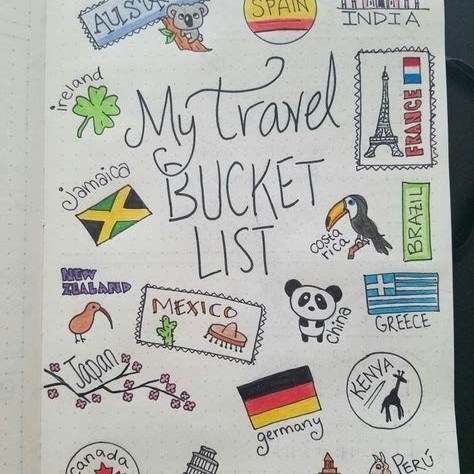 SPAIN
INDIA
ireland
My Travel
BUCKET
LIST
FRANCE
jamaica
costa
rica
BRAZIL
NEW
ZEALAND
MEXICO
china
GREECE
Japan
KENYA
germany
canada
PERÚ